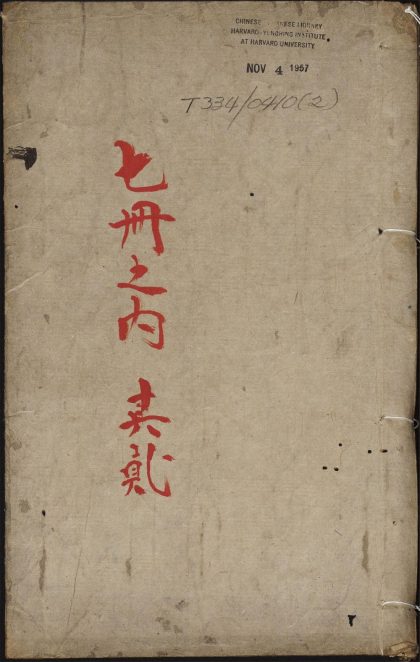 CHINESE JAPANESE LIBRARY
HARVARD-YENCHING INSTITUTE
AT HARVARD UNIVERSITY
NOV 4 1957
T334/0410(2)
七冊之内 其貳